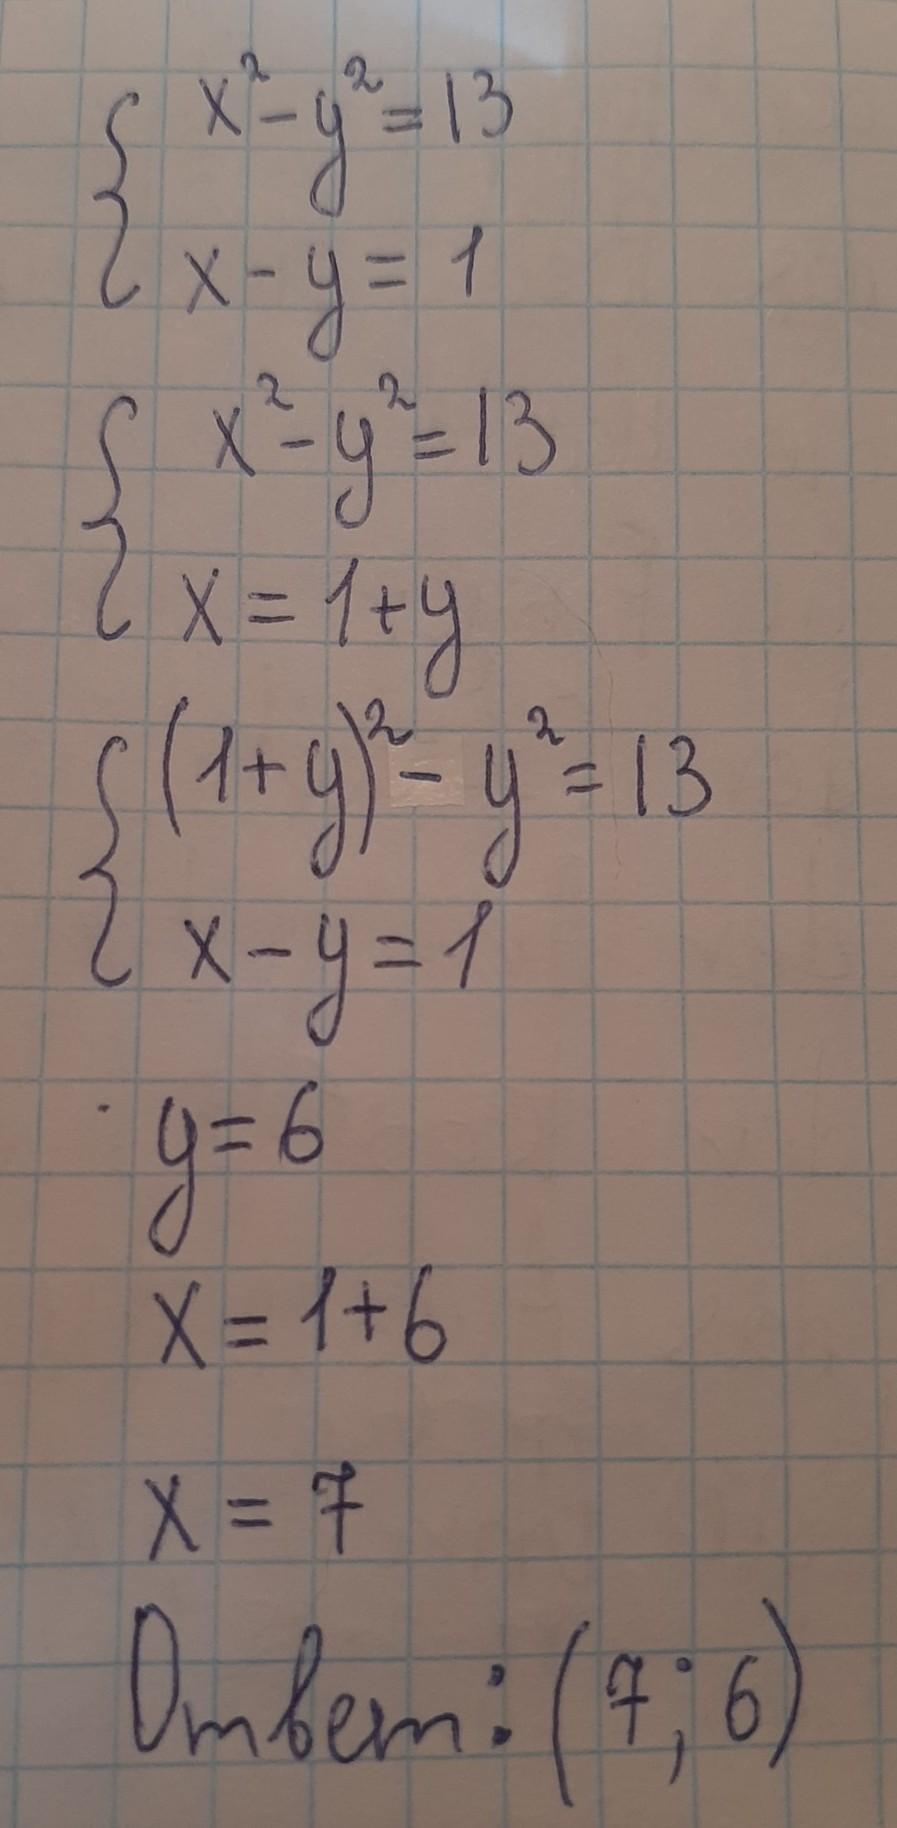 x² - y² = 13
x - y = 1
x² - y² = 13
x = 1 + y
(1 + y)² - y² = 13
x - y = 1
y = 6
x = 1 + 6
x = 7
Ответ: (7; 6)